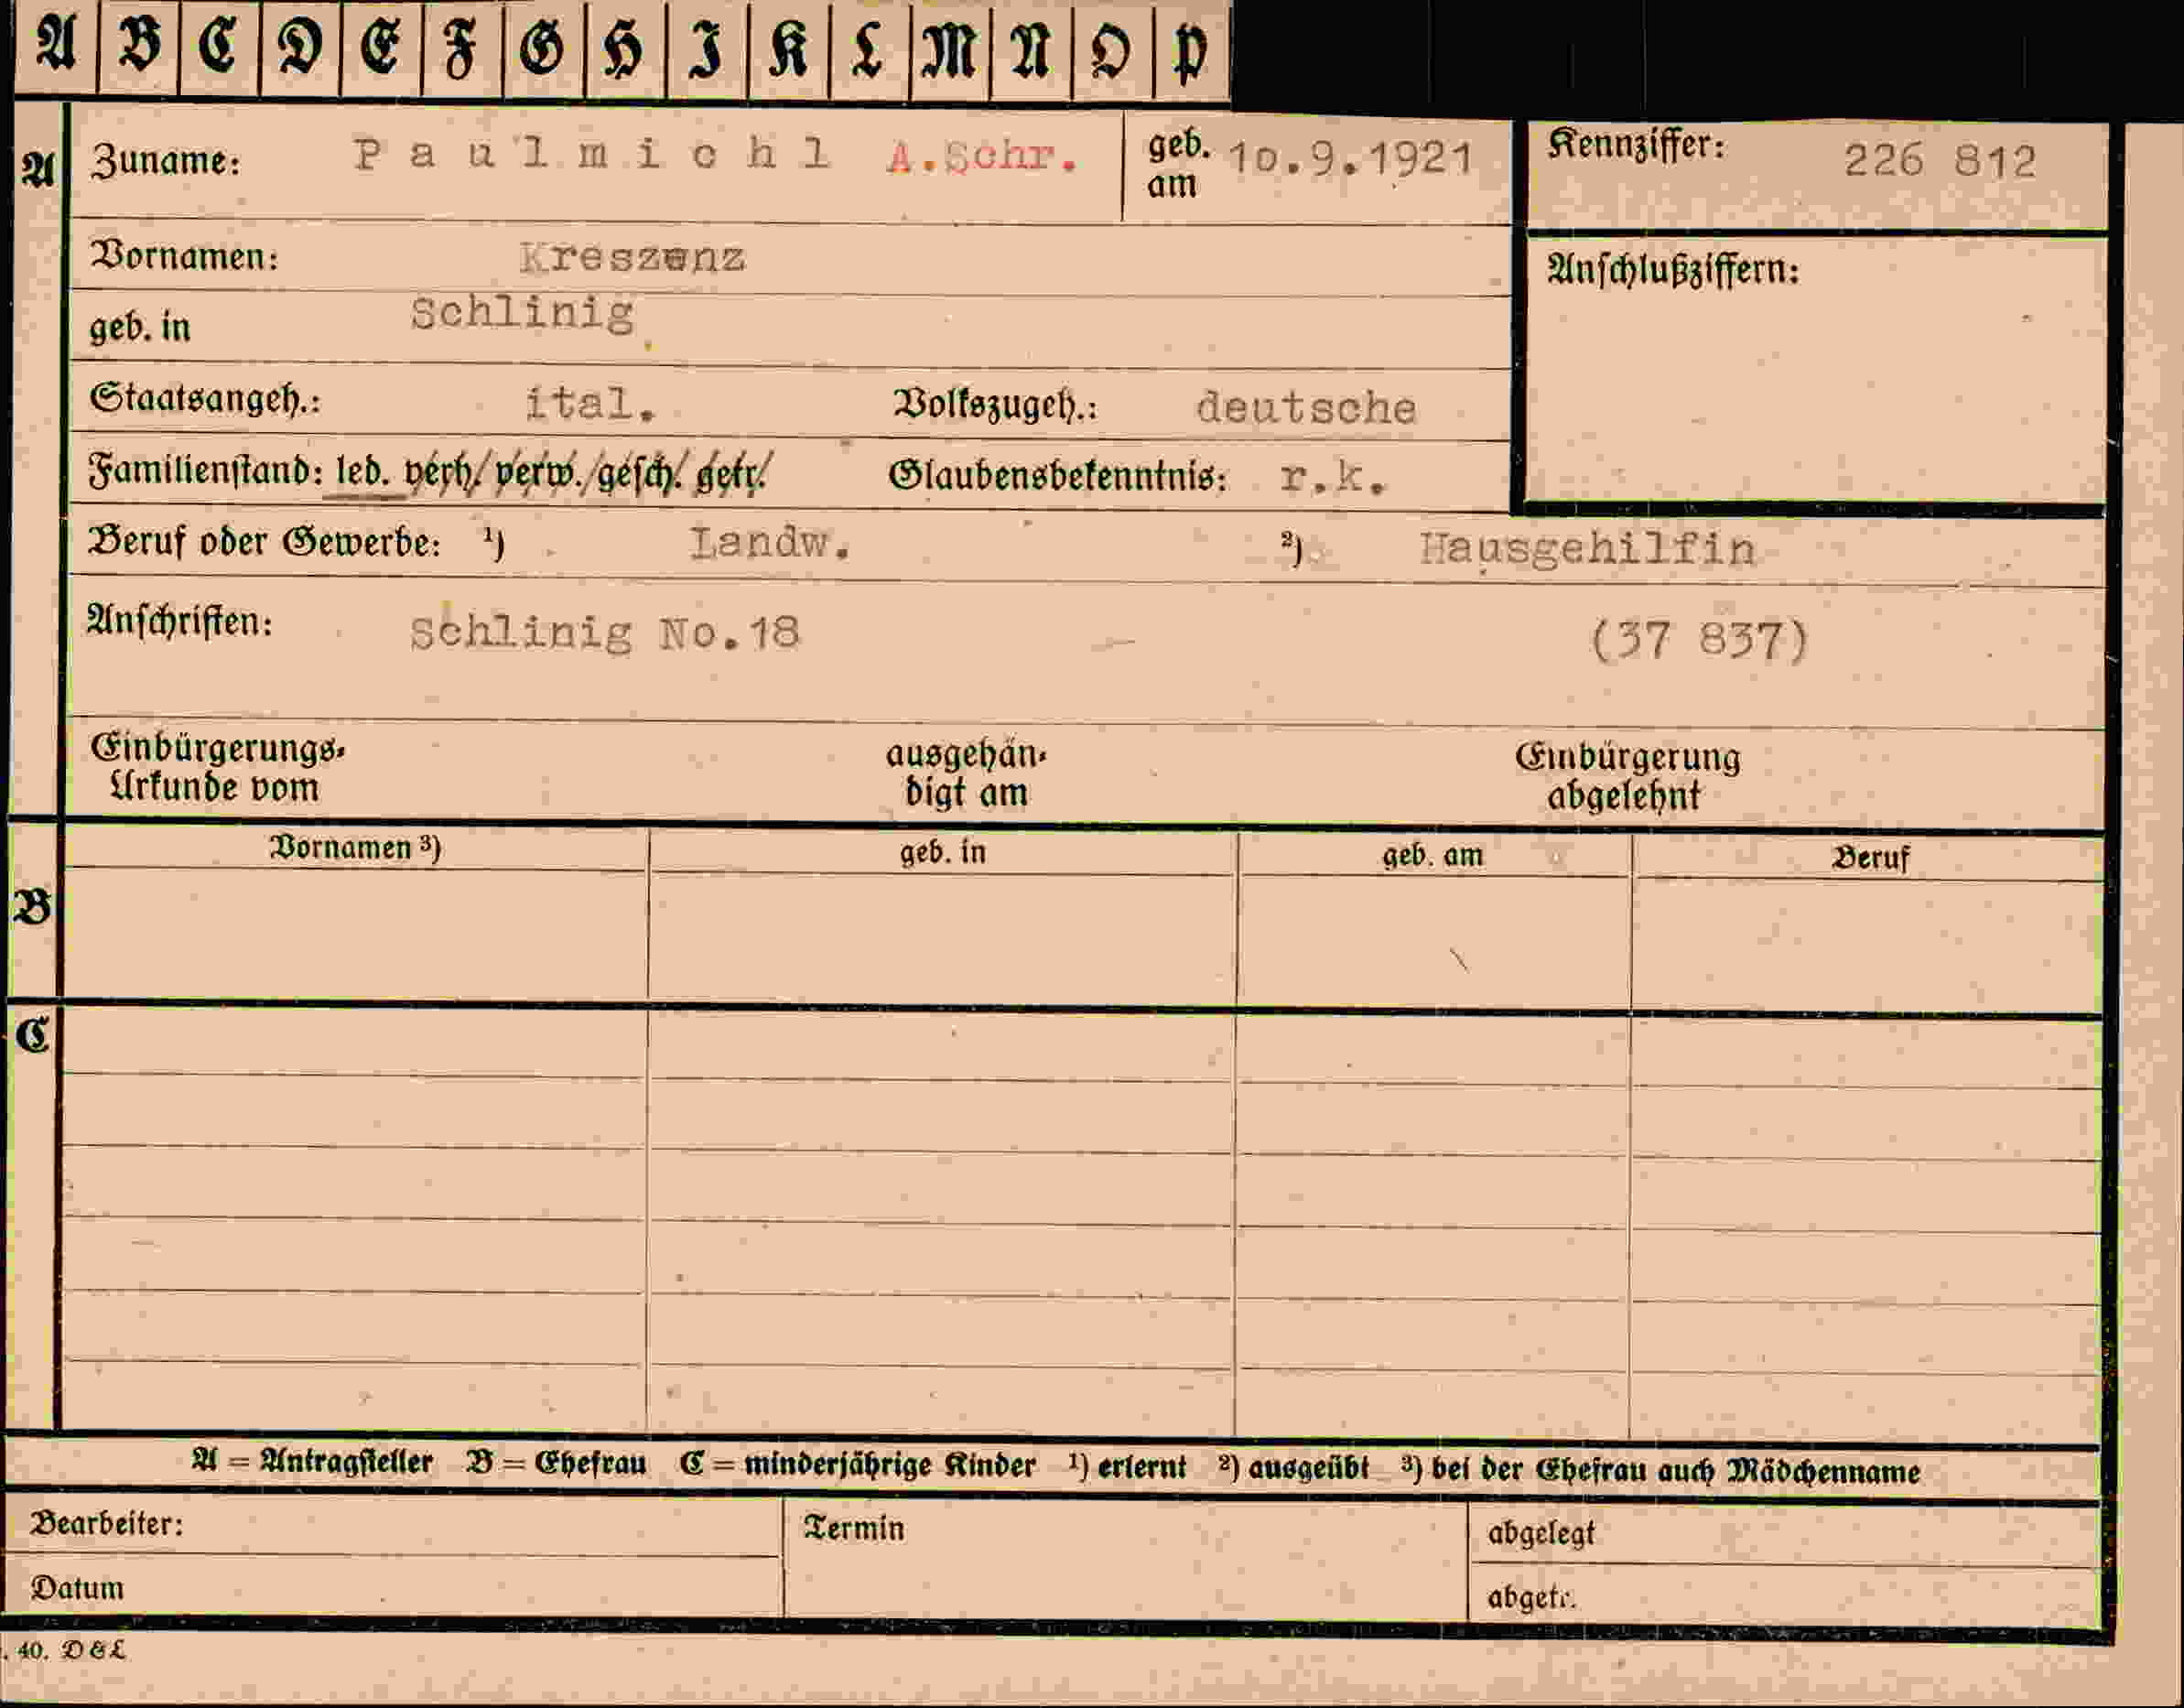 A B C D E F G H I K L M N O P
A Zuname: Paulmichl A.Schr. geb. am 10.9.1921 Kennziffer: 226 812
Vornamen: Kreszenz Anschlußziffern:
geb. in Schlinig
Staatsangeh.: ital. Volkszugeh.: deutsche
Familienstand: led. verh. verw. gesch. getr. Glaubensbekenntnis: r.k.
Beruf oder Gewerbe: ¹) Landw. ²) Hausgehilfin
Anschriften: Schlinig No.18 (37 837)
Einbürgerungs- ausgehän- Einbürgerung
Urkunde vom digt am abgelehnt
Vornamen ³) geb. in geb. am Beruf
B
C
A = Antragsteller B = Ehefrau C = minderjährige Kinder ¹) erlernt ²) ausgeübt ³) bei der Ehefrau auch Mädchenname
Bearbeiter: Termin abgelegt
Datum abgetr.
. 40. D & L